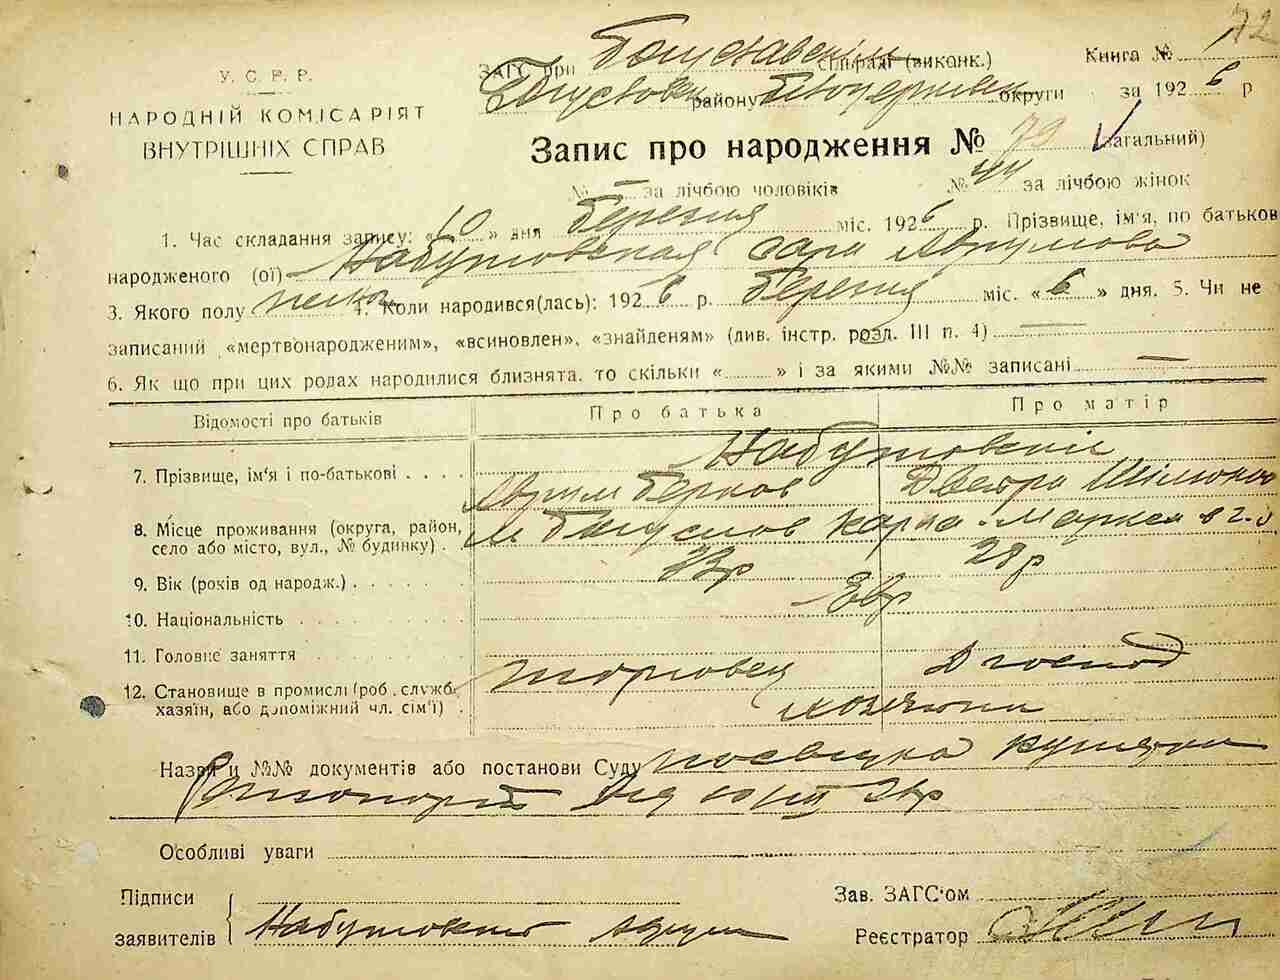 72
У. С. Р. Р.
НАРОДНІЙ КОМІСАРІЯТ
ВНУТРІШНІХ СПРАВ
ЗАГС при Богуславськім сільраді (виконк.) Книга №
району Білоцерків округи за 1926 р
Запис про народження № 79 (загальний)
№ – за лічбою чоловіків № 44 за лічбою жінок
1. Час складання запису: «10» дня березня міс. 1926 р. Прізвище, ім'я, по батьков
народженого (ої) Набутовская Сара Аврумова
3. Якого полу 4. Коли народився(лась): 1926 р. березня міс. «6» дня. 5. Чи не
записаний „«мертвонародженим», «всиновлен», «знайденям» (див. інстр. розд. III п. 4)
6. Як що при цих родах народилися близнята, то скільки «» і за якими №№ записані –
Відомості про батьків Про батька Про матір
Набутовский
7. Прізвище, ім'я і по-батькові Аврум Берков Двейра
8. Місце проживання (округа, район, м Богуслов Карла-Маркса
село або місто, вул., № будинку)
9. Вік (років од народж.) 28р
10. Національність Євр
11. Головне заняття
12. Становище в промислі (роб., служб., торговец Д господ
хазяїн, або допоміжний чл. сім'ї)
Назви и №№ документів або постанови Суду посвідка
Особливі уваги
Підписи Зав. ЗАГС'ом
заявителів Реєстратор